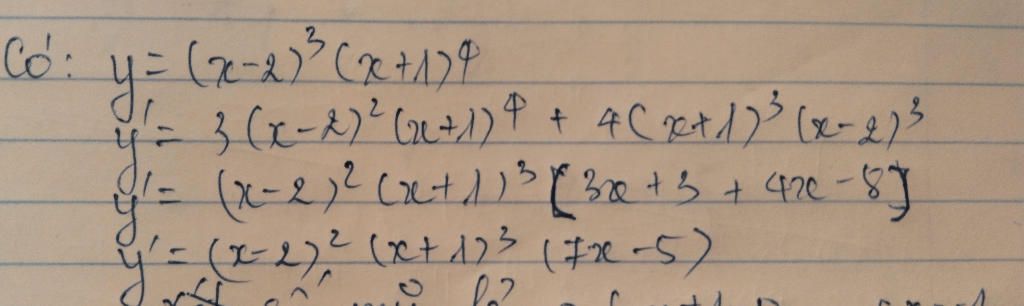 Có: y = (x-2)³(x+1)⁴
y' = 3(x-2)²(x+1)⁴ + 4(x+1)³(x-2)³
y' = (x-2)²(x+1)³[3x+3 + 4x-8]
y' = (x-2)²(x+1)³(7x-5)